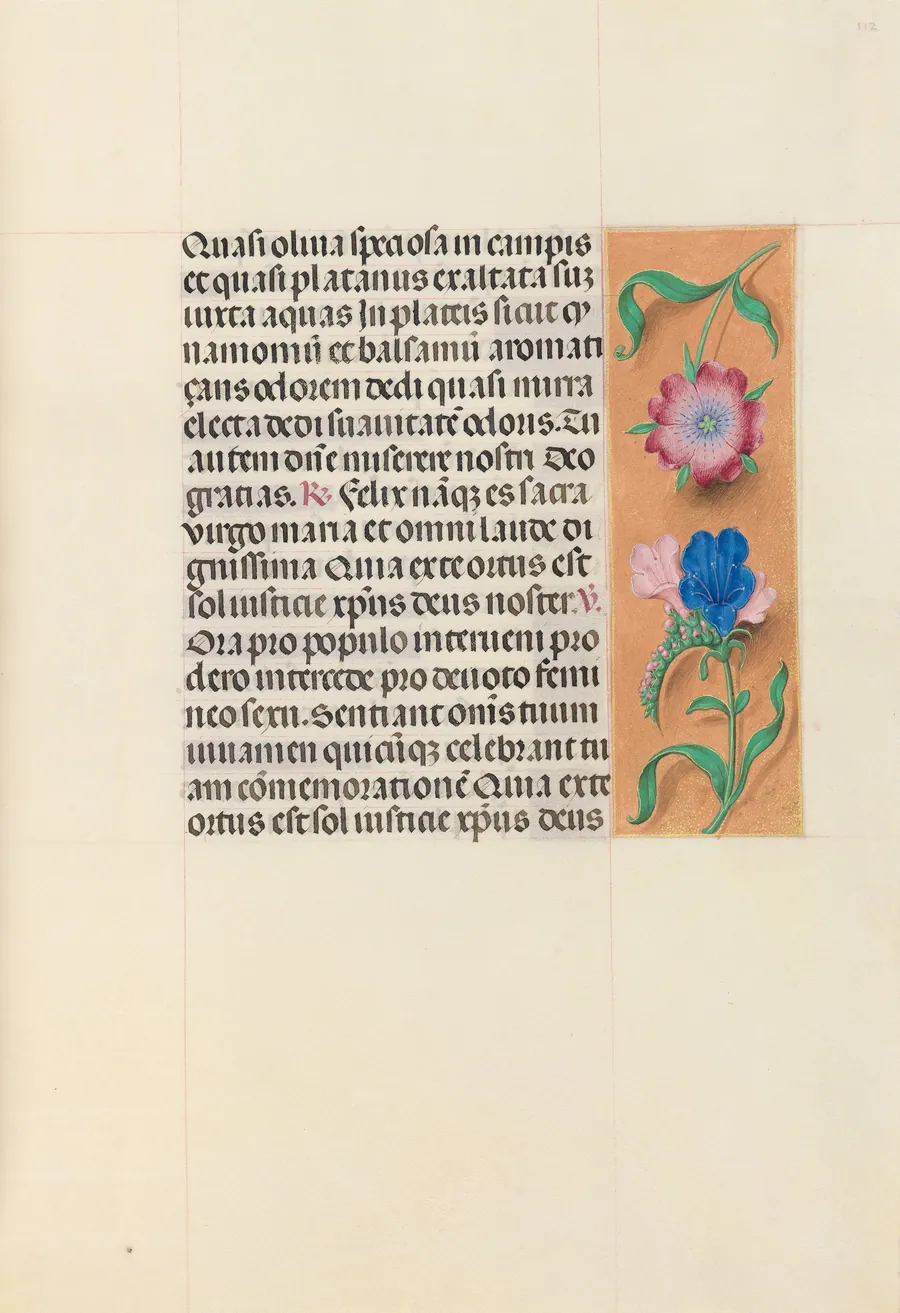 112
Quasi oliua speciosa in campis
et quasi platanus exaltata sūʒ
iuxta aquas In plateis sicut cy
namomū et balsamū aromati
çans odorem dedi quasi mirra
electa dedi suauitatē odoris. Tu
autem dn̄e miserere nostri Deo
gracias. R̷ Felix nāqʒ es sacra
virgo maria et omni laude di
gnissima Quia ex te ortus est
sol iusticie xp̄us deus noster. V̷.
Ora pro populo interueni pro
clero intercede pro deuoto femi
neo sexu. Sentiant om̄s tuum
iuuamen quicūqʒ celebrant tu
am cōmemorationē Quia ex te
ortus est sol iusticie xp̄us deus